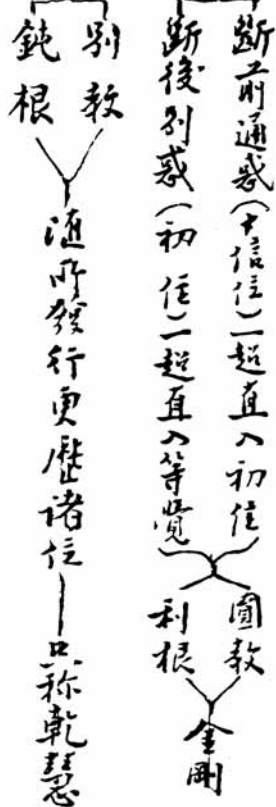 斷前通惑(十信位)一超直入初住
斷後別惑(初住)一超直入等覺
圓教
利根
金剛
別教
鈍根
隨所發行更歷諸位
只稱乾慧